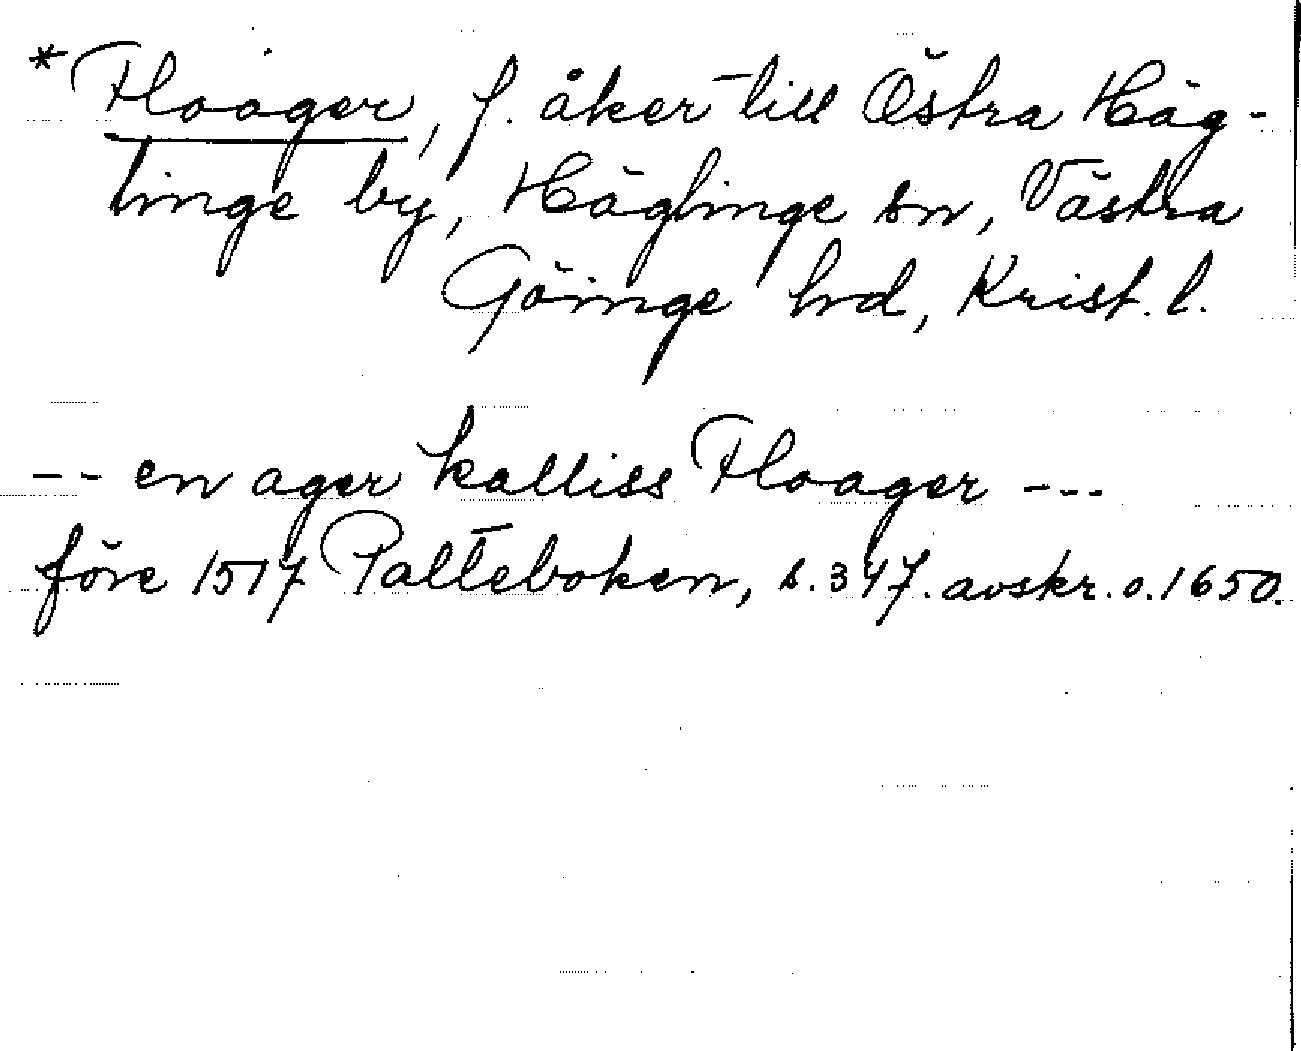 *Floager, f. åker till Östra Häg-
linge by, Häglinge sn, Västra
Göinge hrd, Krist. l.
-- en ager kalliss Floager ---
före 1517 Palteboken, s. 347. avskr. o. 1650.